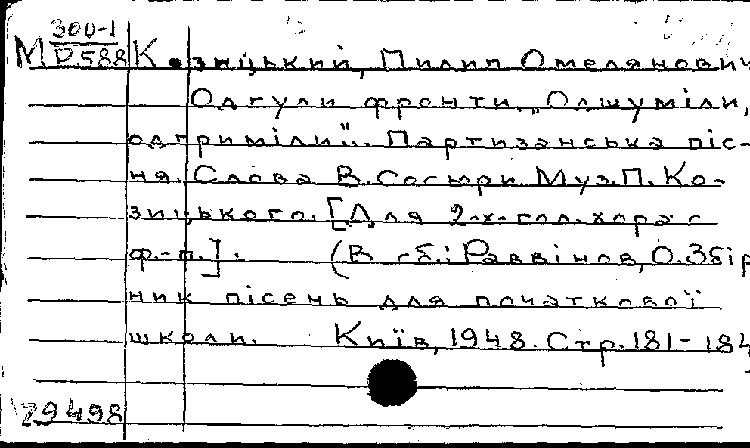 300-1
М Р588 Козицький, Пилип Омелянович
Одгули фронти. „Одшуміли,
одгриміли"... Партизанська піс-
ня. Слова В. Сосюри Муз. П. Ко-
зицького. [Для 2-х-гол. хора с
ф.-п.]. (В сб.: Раввінов, О. Збір
ник пісень для початкової
школи. Київ, 1948. Стр. 181-184
29498